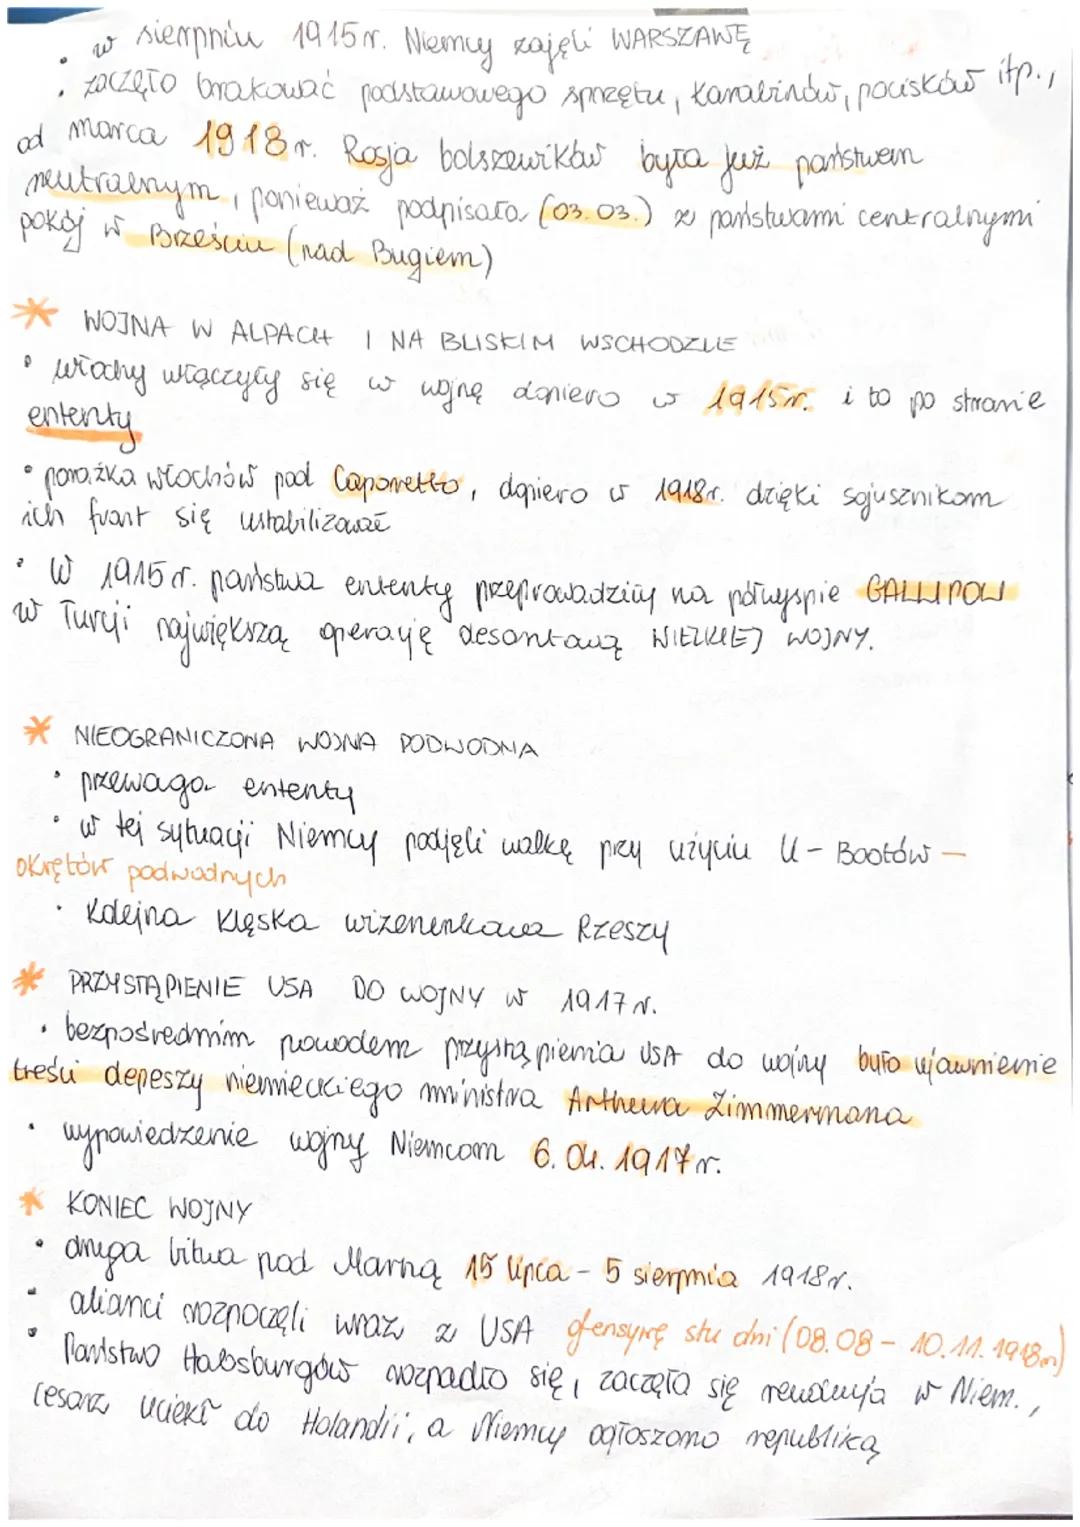 • w sierpniu 1915r. Niemcy zajęli WARSZAWĘ
• zaczęto brakować podstawowego sprzętu, karabinów, pocisków itp.,
od marca 1918r. Rosja bolszewików była już państwem
neutralnym, ponieważ podpisała (03.03.) z państwami centralnymi
pokój w Brześciu (nad Bugiem)
* WOJNA W ALPACH I NA BLISKIM WSCHODZIE
• włochy włączyły się w wojnę dopiero w 1915r. i to po stronie
ententy
• porażka włochów pod Caporetto, dopiero w 1918r. dzięki sojusznikom
ich front się ustabilizował
• W 1915r. państwa ententy przeprowadziły na półwyspie GALLIPOLI
w Turcji największą operację desantową WIELKIEJ WOJNY.
* NIEOGRANICZONA WOJNA PODWODNA
• przewaga ententy
• w tej sytuacji Niemcy podjęli walkę przy użyciu U-Bootów –
okrętów podwodnych
• Kolejna klęska wizerunkowa Rzeszy
* PRZYSTĄPIENIE USA DO WOJNY W 1917r.
• bezpośrednim powodem przystąpienia USA do wojny było ujawnienie
treści depeszy niemieckiego ministra Arthura Zimmermana
• wypowiedzenie wojny Niemcom 6.04.1917r.
* KONIEC WOJNY
• druga bitwa pod Marną 15 lipca – 5 sierpnia 1918r.
• alianci rozpoczęli wraz z USA ofensywę stu dni (08.08 – 10.11.1918r)
• Państwo Habsburgów rozpadło się, zaczęła się rewolucja w Niem.,
cesarz uciekł do Holandii, a Niemcy ogłoszono republiką